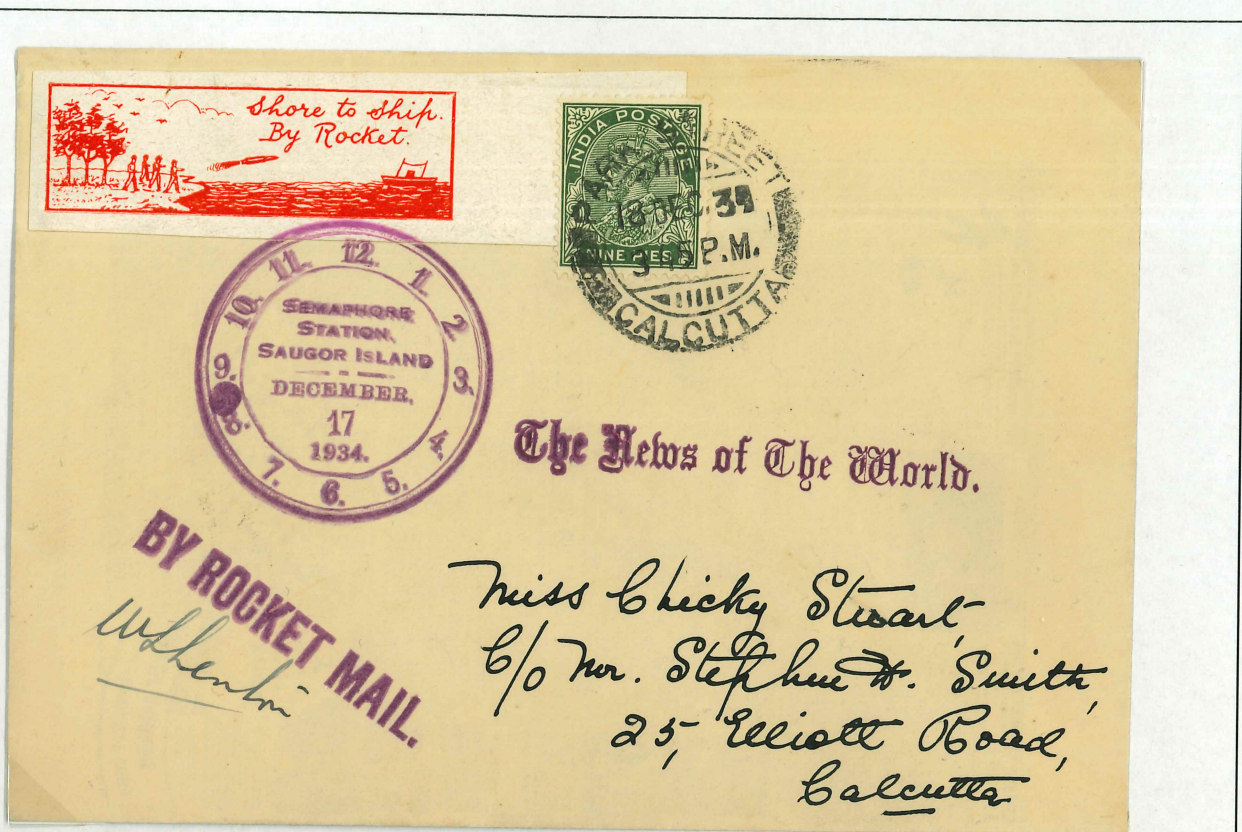 Shore to Ship.
By Rocket.
INDIA POSTAGE
NINE PIES
PARK STREET
18 DEC. 34
P.M.
CALCUTTA
12. 1. 2. 3. 4. 5. 6. 7. 8. 9. 10. 11.
SEMAPHORE
STATION,
SAUGOR ISLAND
DECEMBER,
17
1934.
The News of The World.
BY ROCKET MAIL.
Miss Chicky Stuart,
C/o Mr. Stephen H. Smith,
25, Elliott Road,
Calcutta